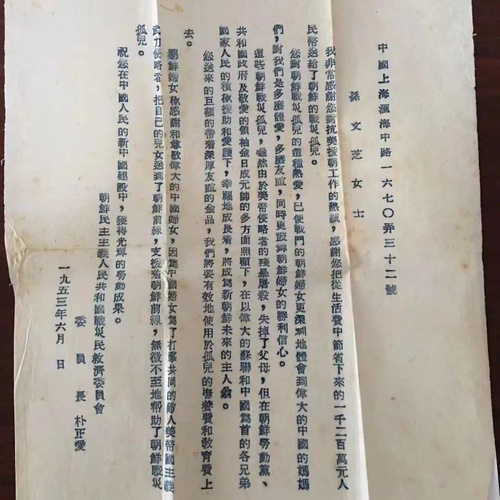 中國上海淮海中路一六七〇弄三十二號
孫文芝女士
我非常感謝您對抗美援朝工作的熱誠，感謝您把從生活費中節省下來的一千二百萬元人
民幣送給了朝鮮的戰災孤兒。
您對朝鮮戰災孤兒的這種熱愛，已使戰鬥的朝鮮婦女更深刻地體會到偉大的中國的媽媽
們，對我們是多麼關愛，多麼友誼，同時更鼓舞朝鮮婦女的勝利信心。
這些朝鮮戰災孤兒，雖然由於美帝侵略者的殘暴屠殺，失掉了父母，但在朝鮮勞動黨、
共和國政府及敬愛的領袖金日成元帥的多方面照顧下，在以偉大的蘇聯和中國爲首的各兄弟
國家人民的積極援助和愛護下，幸福地成長着，將成爲新朝鮮未來的主人翁。
您送來的巨額的帶着深厚友誼的金品，我們將要有效地使用於孤兒的養費和敎育費上
去。
朝鮮婦女極感謝和尊敬偉大的中國婦女，因爲中國婦女爲了打擊共同的敵人美帝國主義
武力侵略者，把自己的兒女送到了朝鮮前線，支援着朝鮮前線，無微不至地幫助了朝鮮戰災
孤兒。
祝您在中國人民的新中國建設中，獲得光輝的勞動成果。
朝鮮民主主義人民共和國戰災民救濟委員會
委員長 朴正愛
一九五三年六月 日